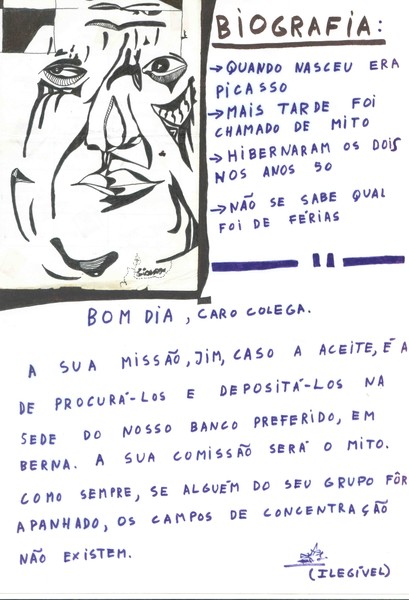 BIOGRAFIA:
→ QUANDO NASCEU ERA
PICASSO
→ MAIS TARDE FOI
CHAMADO DE MITO
→ HIBERNARAM OS DOIS
NOS ANOS 50
→ NÃO SE SABE QUAL
FOI DE FÉRIAS
BOM DIA, CARO COLEGA.
A SUA MISSÃO, JIM, CASO A ACEITE, É A
DE PROCURÁ-LOS E DEPOSITÁ-LOS NA
SEDE DO NOSSO BANCO PREFERIDO, EM
BERNA. A SUA COMISSÃO SERÁ O MITO.
COMO SEMPRE, SE ALGUÉM DO SEU GRUPO FÔR
APANHADO, OS CAMPOS DE CONCENTRAÇÃO
NÃO EXISTEM.
(ILEGÍVEL)